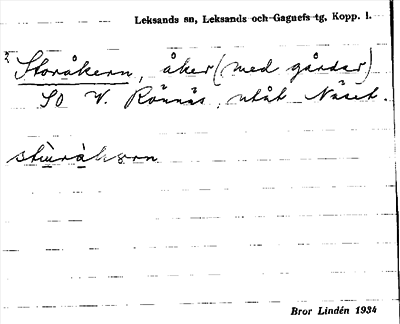 Leksands sn, Leksands och Gagnefs tg, Kopp. l.
? Storåkern, åker (med gårdar)
SO V. Rönnäs, utåt Näset.
stùràkərn
Bror Lindén 1934